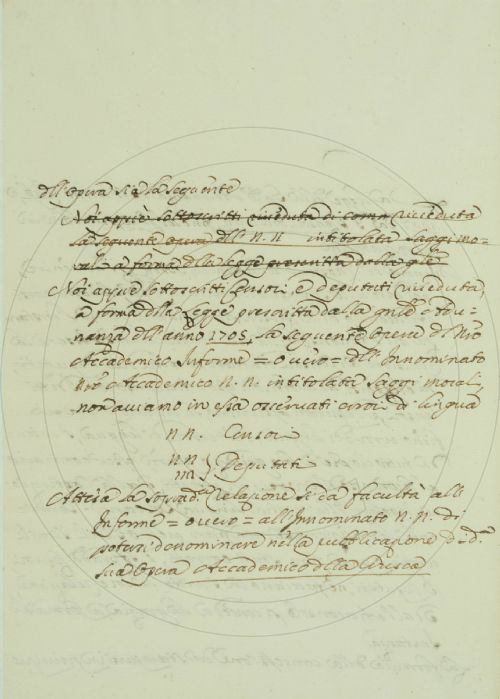 dell'Opera sia la seguente
Noi appiè sottoscritti riveduta di comm riveduta
la seguente opera dell N. N. intitolata Saggi mo=
rali a forma della legge prescritta dalla gñle
Noi appiè sottoscritti Censori, e deputati riveduta,
a forma dlla Legge prescritta dalla gñle ordi=
nanza dell'anno 1705, la seguente Opera di Nrõ
Accademico Informe = o vero = dell'Innominato
Nrõ Accademico N. N. intitolata Saggi morali,
non aviamo in essa osservati errori di lingua
NN. Censori
NN
NN } Deputati
Attesa la soprad.ta relazione si da facultà all'
Informe = o vero = all'Innominato N. N. di
potersi denominare nella pubblicazione di d.ª
sua Opera Accademico della Crusca